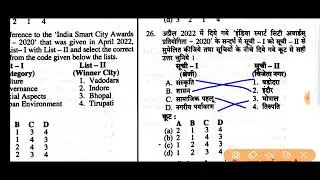 (d) 3 2 1 4
ference to the 'India Smart City Awards
– 2020' that was given in April 2022,
List–I with List – II and select the correct
from the code given below the lists.
t – I List – II
tegory) (Winner City)
lture 1. Vadodara
vernance 2. Indore
ial Aspects 3. Bhopal
an Environment 4. Tirupati
B C D
1 3 4
2 4 3
2 3 4
26. अप्रैल 2022 में दिये गये 'इंडिया स्मार्ट सिटी अवार्ड्स
प्रतियोगिता – 2020' के सन्दर्भ में सूची - I को सूची – II से
सुमेलित कीजिये तथा सूचियों के नीचे दिये गये कूट से सही
उत्तर चुनिये ।
सूची – I सूची – II
(श्रेणी) (विजेता नगर)
A. संस्कृति 1. वडोदरा
B. शासन 2. इंदौर
C. सामाजिक पहलू 3. भोपाल
D. नगरीय पर्यावरण 4. तिरुपति
कूट :
A B C D
(a) 2 1 3 4
(b) 1 2 4 3
(d) 1 2 3 4